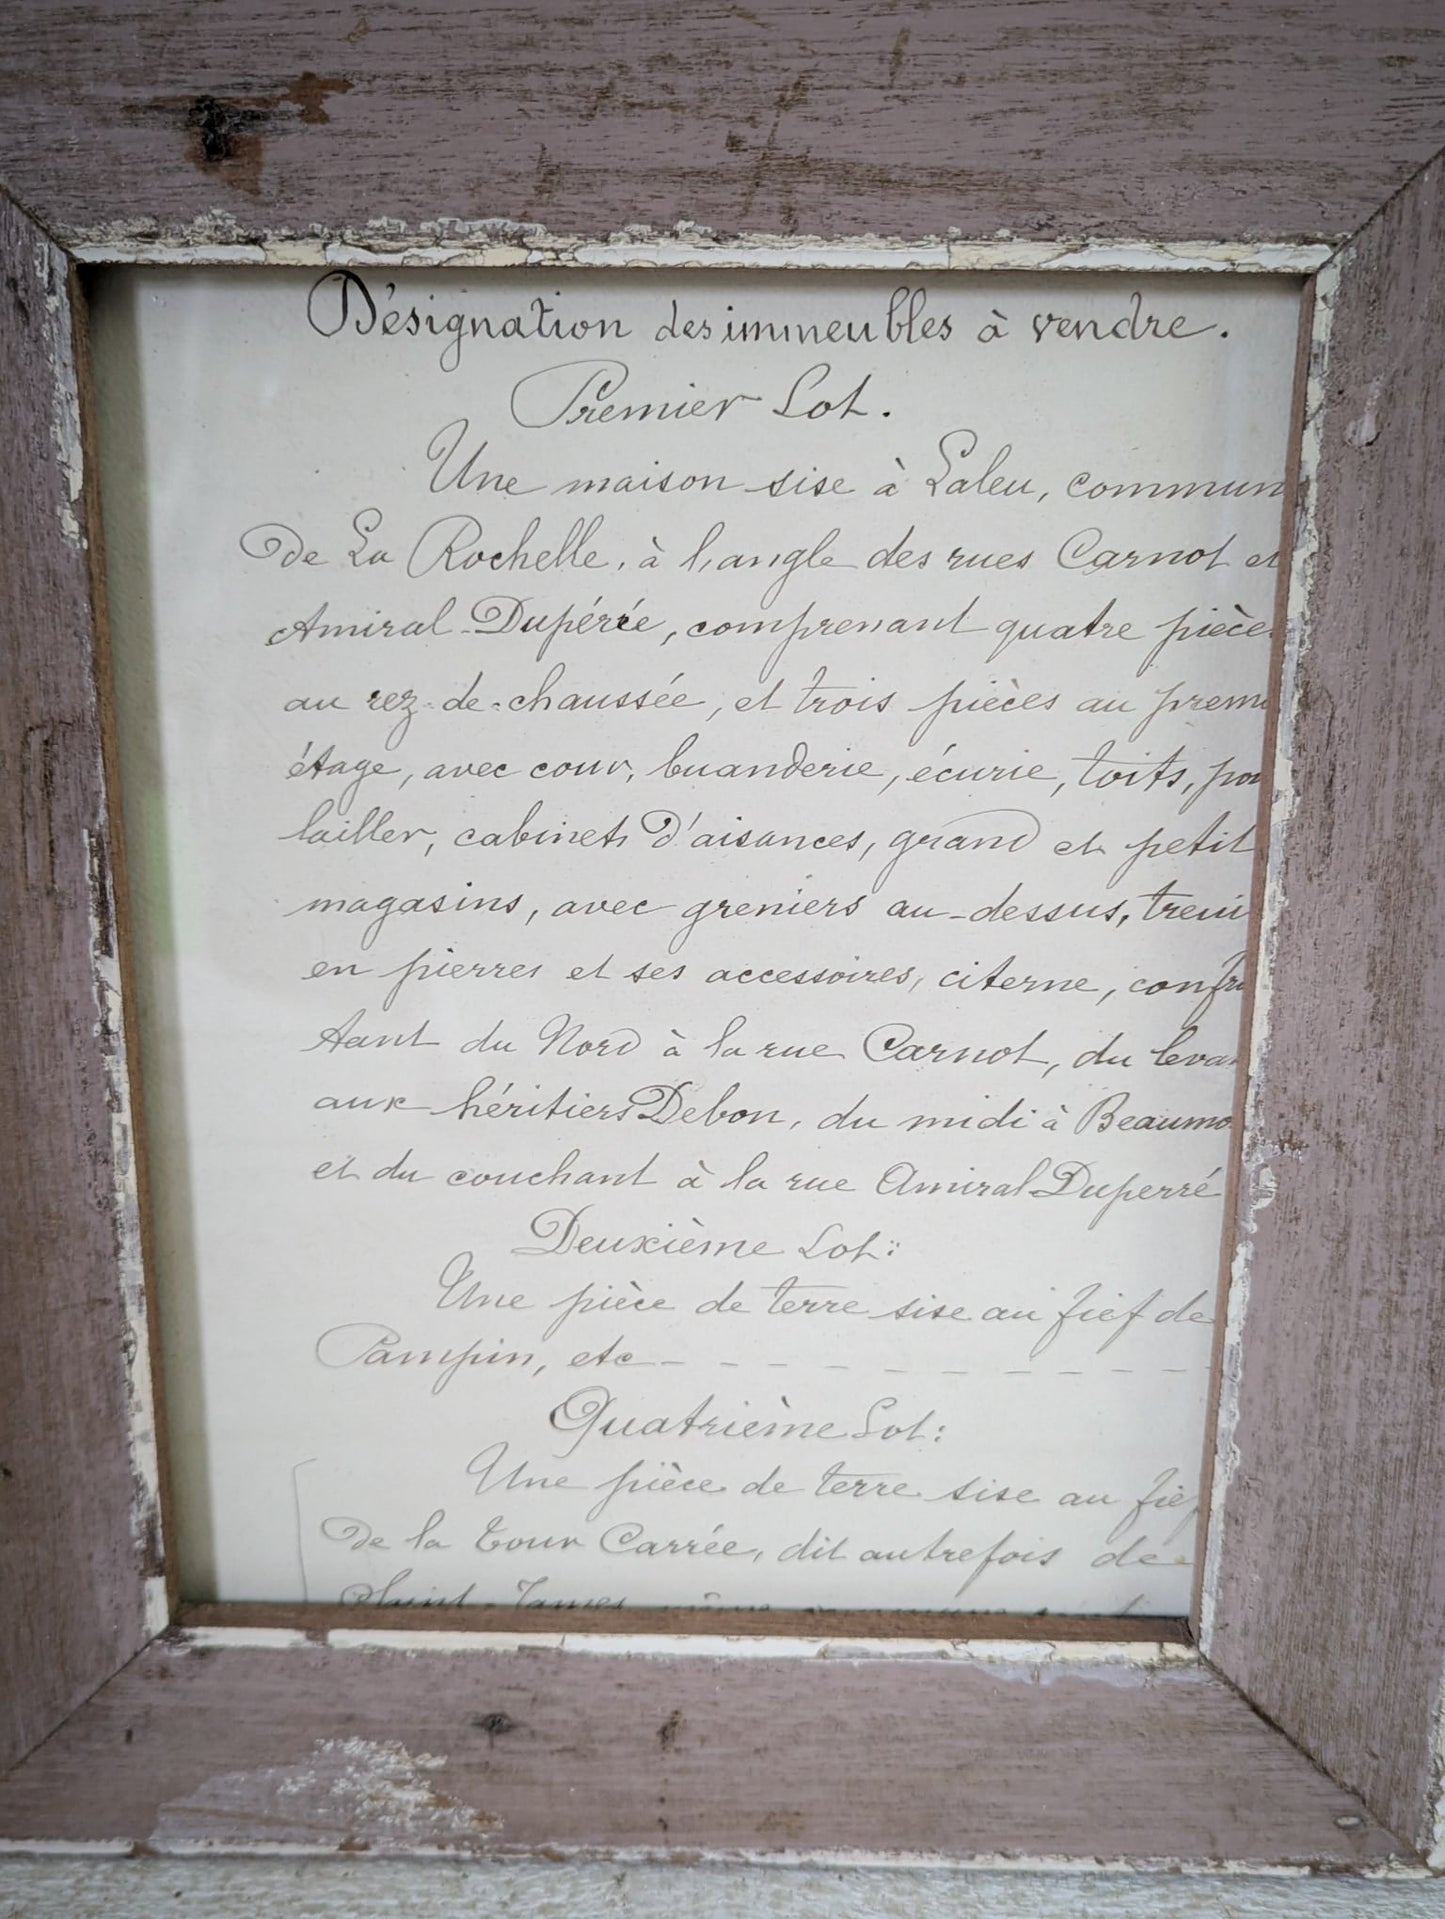 Désignation des immeubles à vendre.
Premier Lot.
Une maison sise à Laleu, commun
de La Rochelle, à l'angle des rues Carnot et
Amiral-Dupérée, comprenant quatre pièce
au rez-de-chaussée, et trois pièces au prem
étage, avec cour, buanderie, écurie, toits, pou
lailler, cabinets d'aisances, grand et petit
magasins, avec greniers au-dessus, treui
en pierres et ses accessoires, citerne, confr
tant du Nord à la rue Carnot, du leva
aux héritiers Debon, du midi à Beaumo
et du couchant à la rue Amiral Duperré
Deuxième Lot:
Une pièce de terre sise au fief de
Pampin, etc - - - - - - - - - -
Quatrième Lot:
Une pièce de terre sise au fief
de la Tour Carrée, dit autrefois de
Saint-James, même commune